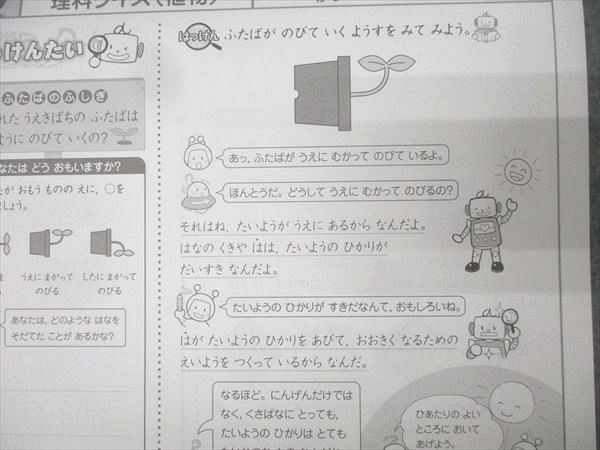 理科クイズ(植物)
っけんたい
ふたばのふしぎ
れた うえきばちの ふたばは
ように のびて いくの?
なたは どう おもいますか?
たが おもう ものの えに、○を
ましょう。
うえに まがって
のびる
したに まがって
のびる
あなたは、どのような はなを
そだてた ことが あるかな?
はっけん
ふたばが のびて いく ようすを みて みよう。
あっ、ふたばが うえに むかって のびて いるよ。
ほんとうだ。どうして うえに むかって のびるの?
それはね、たいようが うえに あるから なんだよ。
はなの くきや はは、たいようの ひかりが
だいすき なんだよ。
たいようの ひかりが すきだなんて、おもしろいね。
はが たいようの ひかりを あびて、おおきく なるための
えいようを つくって いるから なんだ。
なるほど。にんげんだけでは
なく、くさばなに とっても、
たいようの ひかりは とても
ひあたりの よい
ところに おいて
あげよう。